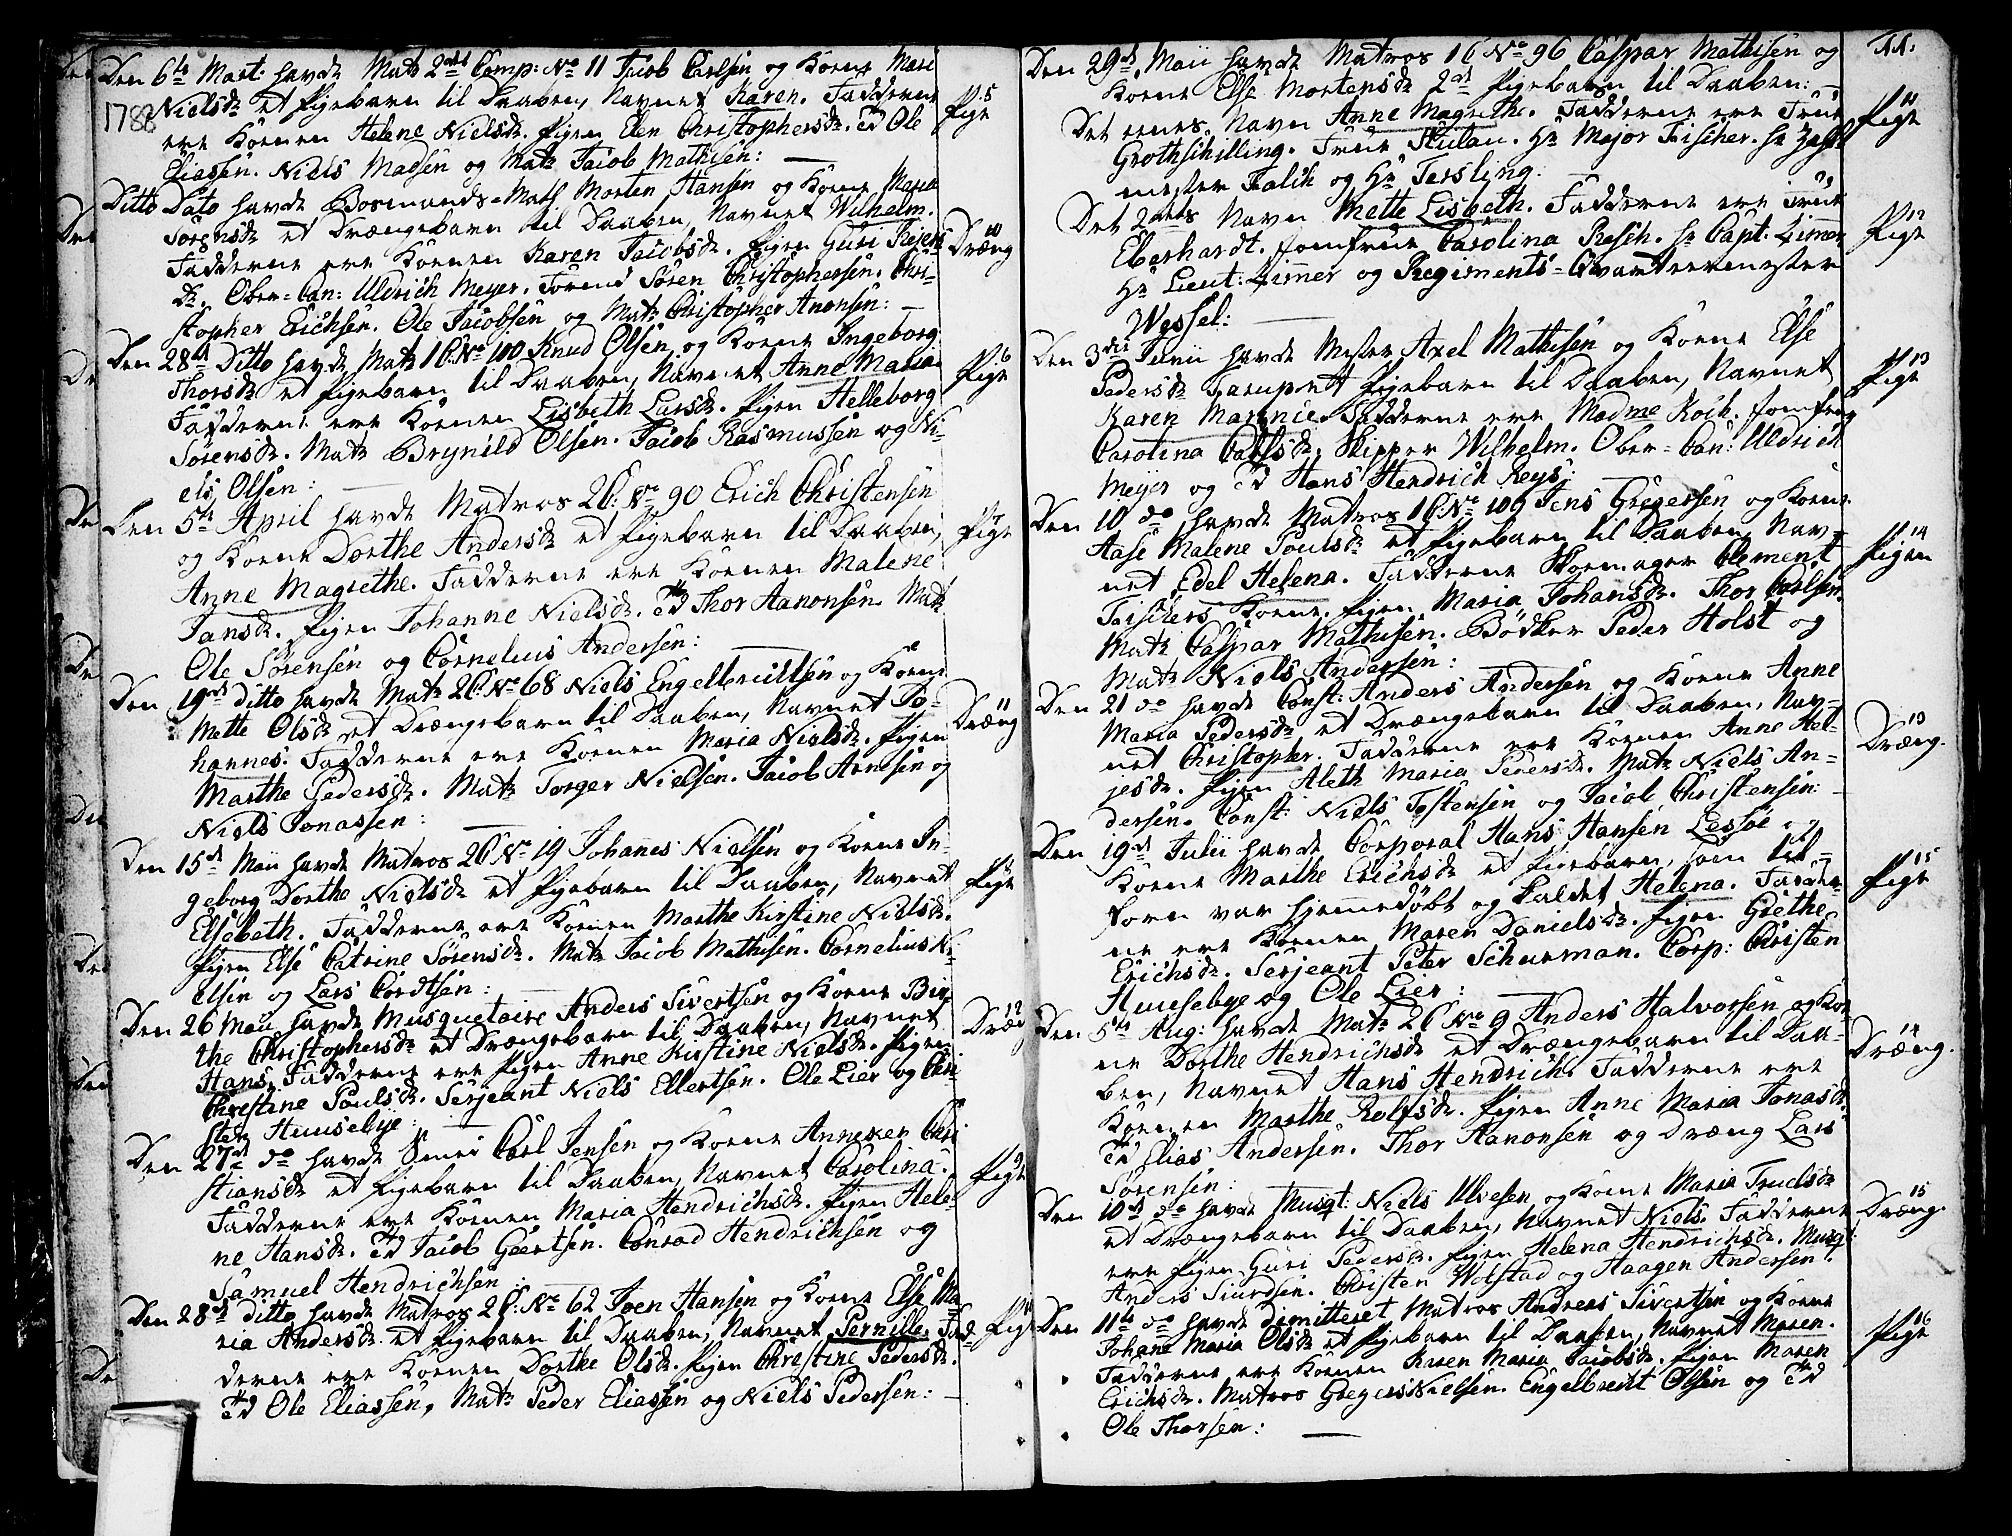 1788
Den 6te Mart: havde Mats 2det Comp: No 11 Jacob Carlsen og Kone Mari
Nielsdr et Pigebarn til Daaben, Navnet Karen. Fadderne
ere Konen Helene Nielsdr. Pigen Elen Christophersdr. Td Ole
Eliassen. Niels Madsen og Matr Jacob Mathisen:
5
Pige
Ditto Dato havde Bosmands-Math Morten Hansen og Kone Maria
Jörgensdr et Drængebarn til Daaben, Navnet Wilhelm.
Fadderne ere Konen Karen Jacobsdr. Pigen Guri Reiers
dr. Ober-Can: Uldrich Meyer. Sören Christophersen. Chri-
stopher Erichsen. Ole Jacobsen og Matr Christopher Anonsen:
10
Dræng
Den 28de Ditto havde Matr 1C: No 100 Knud Olsen og Kone Ingeborg
Thorsdr et Pigebarn til Daaben, Navnet Anne Maria
Fadderne ere Konen Lisbeth Larsdr. Pigen Helleborg
Sörensdr. Matr Brynild Olsen. Jacob Rasmussen og Ni-
els Olsen:
6
Pige
Den 5te April havde Matros 2C: No 90 Erich Christensen
og Kone Dorthe Andersdr et Pigebarn til Daaben,
Anne Magrethe. Fadderne ere Konen Malene
Jansdr. Pigen Johanne Nielsdr. Td Thor Aanonsen. Matr
Ole Sörensen og Cornelius Andersen:
7
Pige
Den 19de ditto havde Matr 2C: No 68 Niels Engelbricttsen og Kone
Mette Olsdr et Drængebarn til Daaben, Navnet Jo-
hannes. Fadderne ere Konen Maria Nielsdr. Pigen
Marthe Pedersdr. Matr Torger Nielsen. Jacob Arnesen og
Niels Jonassen:
11
Dræng
Den 15de Maii havde Matros 2C No 19 Johanes Nielsen og Kone In-
geborg Dorthe Nielsdr et Pigebarn til Daaben, Navnet
Elsebeth. Fadderne ere Konen Marthe Kirstine Nielsdr.
Pigen Else Catrine Sörensdr. Matr Jacob Mathisen. Cornelius Ni-
elsen og Lars Cordtsen:
8
Pige
Den 26 Maii havde Musquetaire Anders Sivertsen og Kone Bir-
the Christophersdr et Drængebarn til Daaben, Navnet
Hans. Fadderne ere Pigen Anne Kirstine Nielsdr. Pigen
Christine Poulsdr. Serjeant Niels Ellertsen. Ole Lier og Chri-
sten Huusebye:
12
Dræng
Den 27de do havde Smed Carl Jensen og Kone Anneken Chri
stiansdr et Pigebarn til Daaben, Navnet Carolina.
Fadderne ere Konen Maria Hendrichsdr. Pigen Hele-
ne Hansdr. Td Jacob Geertsen. Conrad Hendrichsen og
Samuel Hendrichsen:
9
Pige
Den 28de ditto havde Matros 2C: No 62 Joen Hansen og Kone Else Ma-
ria Andersdr et Pigebarn til Daaben, Navnet Pernille. Fad-
derne ere Konen Dorthe Olsdr. Pigen Christine Pedersdr.
Td Ole Eliassen, Matr Peder Eliassen og Niels Pedersen:
10
Pige
11.
Den 29de Maii havde Matros 1C No 96 Caspar Mathisen og
Kone Else Mortensdr 2de Pigebarn til Daaben:
Det eenes Navn Anne Magrethe. Fadderne ere Frue
Grothschilling. Frue Skulan. Hr Major Fischer. Hr Zahl
mester Falch og Hr Tersling:
11
Pige
Det 2dets Navn Mette Lisbeth. Fadderne ere Frue
Eberhardt. Jomfrue Carolina Resch. Hr Capt: Zimer
Hr Lieut: Zimer og Regiments-Qvarteermester
Wessel:
12
Pige
Den 3die Junii havde Mester Axel Mathisen og Kone Else
Pedersdr Tarup et Pigebarn til Daaben, Navnet
Karen Marenie. Fadderne ere Madme Koch. Jomfrue
Carolina Carlsdr. Skipper Wilhelm. Ober-Can: Uldrich
Meyer og Td Hans Hendrich Reys:
13
Pige
Den 10 do havde Matros 1C No 109 Jens Gregersen og Kone
Aase Malene Poulsdr et Pigebarn til Daaben, Nav-
net Edel Helena. Fadderne Skomager Clement
Fischers Kone. Pigen Maria Johansdr. Thor Carlsen.
Matr Caspar Mathisen. Bödker Peder Holst og
Matr Niels Andersen:
14
Pigen
Den 21 do havde Const: Anders Andersen og Kone Anne
Maria Pedersdr et Drængebarn til Daaben, Nav-
net Christopher. Fadderne ere Konen Anne Hel-
jesdr. Pigen Aleth Maria Pedersdr. Matr Niels An-
dersen. Const: Niels Tostensen og Jacob Christensen:
13
Dræng.
Den 19de Julii havde Corporal Hans Hansen Lessöe og
Kone Marthe Erichsdr et Pigebarn, som til-
forn var hjemmedöbt og kaldet Helena. Fadder-
ne ere Konen Maren Danielsdr. Pigen Grethe
Erichsdr. Serjeant Peter Schurman. Corp: Christen
Huusebye og Ole Lier:
15
Pige
Den 5te Aug: havde Matr 2C No 9 Anders Halvorsen og Ko-
ne Dorthe Hendrichsdr et Drængebarn til Daa-
ben, Navnet Hans Hendrich. Fadderne ere
Konen Marthe Rolfsdr. Pigen Anne Maria Jonasdr.
Td Elias Andersen. Thor Aanonsen og Dræng Lars
Sörensen:
14
Dræng.
Den 10de do havde Musqt: Niels Ulvesen og Kone Maria Truelsdr
et Drængebarn til Daaben, Navnet Niels. Fadderne
ere Pigen Guri Pedersdr. Pigen Helena Hendrichsdr. Musqt:
Anders Siurdsen. Christen Wolstad og Haagen Andersen:
15
Dræng.
Den 11te do havde Dimitteret Matros Andreas Sivertsen og Kone
Johane Maria Olsdr et Pigebarn til Daaben, Navnet Maren.
Fadderne ere Konen Karen Maria Jacobsdr. Pigen Maren
Erichsdr. Matros Gregers Nielsen. Engelbrecht Olsen og Td
Ole Thorsen:
16
Pige